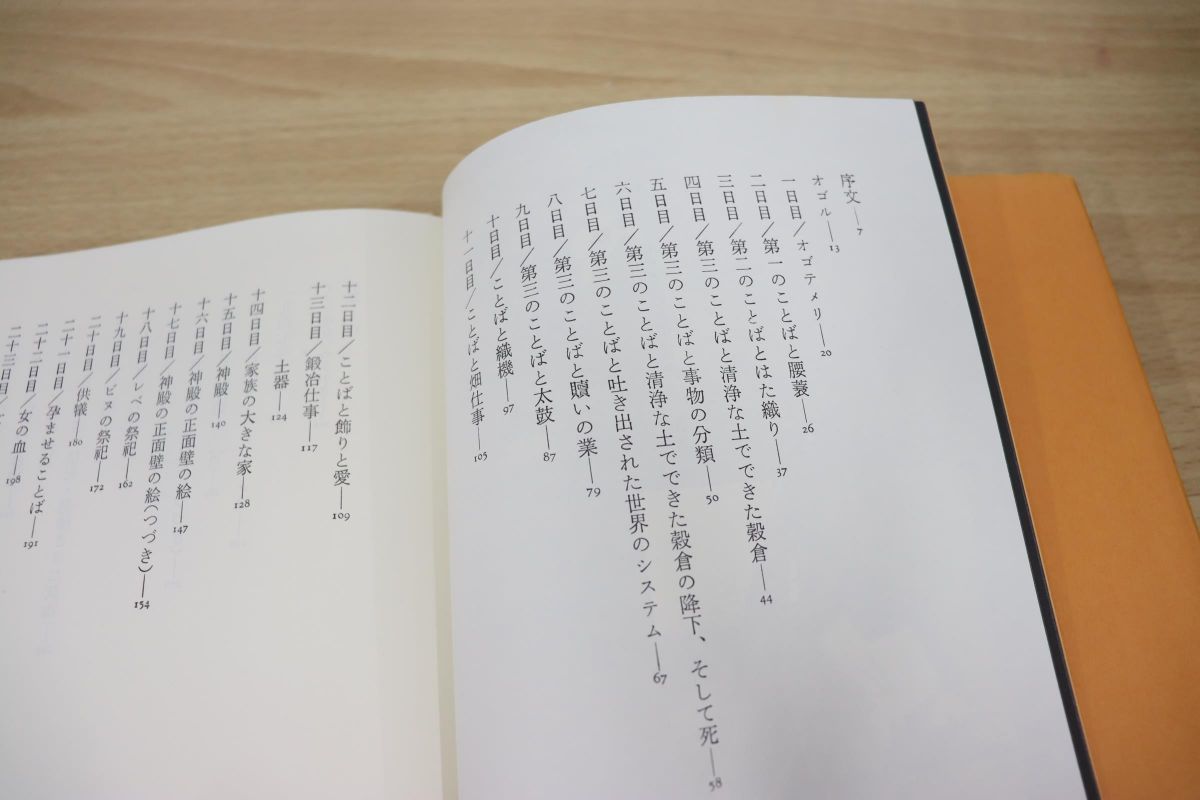 序文——7
オゴル——13
一日目／オゴテメリ——20
二日目／第一のことばと腰蓑——26
三日目／第二のことばとはた織り——37
四日目／第三のことばと清浄な土でできた穀倉——44
五日目／第三のことばと事物の分類——50
六日目／第三のことばと清浄な土でできた穀倉の降下、そして死——58
七日目／第三のことばと吐き出された世界のシステム——67
八日目／第三のことばと贖いの業——79
九日目／第三のことばと太鼓——87
十日目／ことばと織機——97
十一日目／ことばと畑仕事——105
十二日目／ことばと飾りと愛——109
十三日目／鍛冶仕事——117
土器——124
十四日目／家族の大きな家——128
十五日目／神殿——140
十六日目／神殿の正面壁の絵——147
十七日目／神殿の正面壁の絵（つづき）——154
十八日目／レベの祭祀——162
十九日目／ビヌの祭祀——172
二十日目／供犠——180
二十一日目／孕ませることば——191
二十二日目／女の血——198
二十三日目／